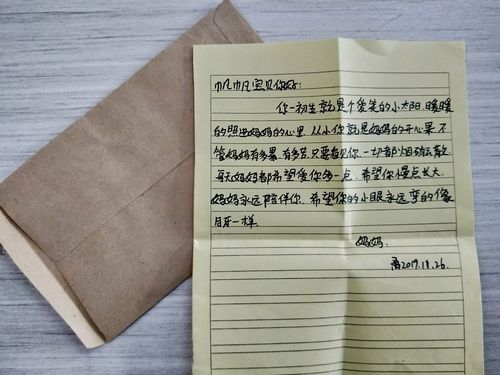 帆帆宝贝你好:
你一初生就是个爱笑的小太阳.暖暖
的照进妈妈的心里.从小你就是妈妈的开心果.不
管妈妈有多累.有多苦.只要看见你.一切都烟消云散.
每天妈妈都希望爱你多一点.希望你慢点长大.
妈妈永远陪伴你.希望你的小眼永远弯的像
月牙一样.
妈妈.
2019.11.26.